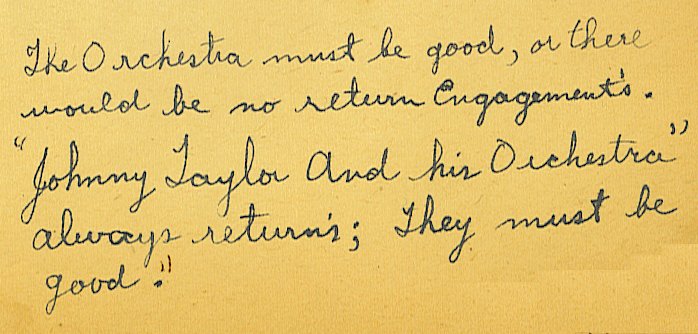 The Orchestra must be good, or there
would be no return Engagement's.
"Johnny Taylor And his Orchestra"
always return's; They must be
good."